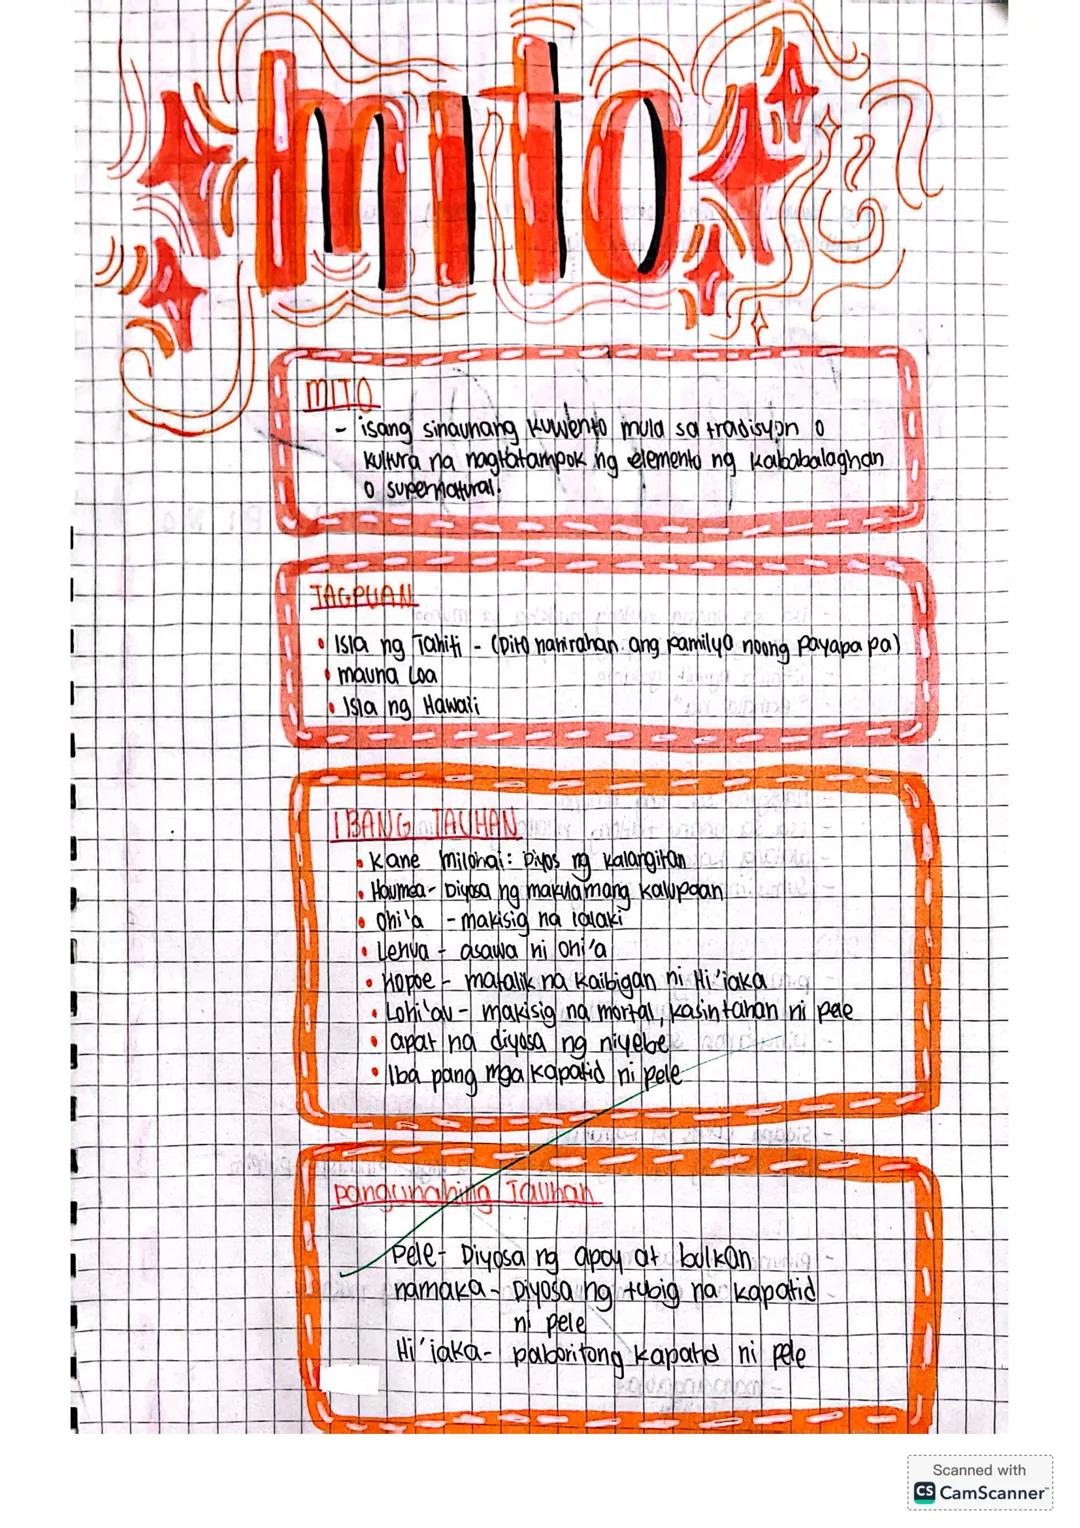 mito
MITO
- isang sinaunang kuwento mula sa tradisyon o
kultura na nagtatampok ng elemento ng kababalaghan
o supernatural.
TAGPUAN
• Isla ng Tahiti - (Dito nanirahan ang pamilya noong payapa pa)
• mauna Loa
• Isla ng Hawaii
IBANG TAUHAN
• Kane milohai: Diyos ng kalangitan
• Haumea - Diyosa ng makalamang kalupaan
• Ohi'a - makisig na lalaki
• Lehua - asawa ni Ohi'a
• hopoe - matalik na kaibigan ni Hi'iaka
• Lohi'au - makisig na mortal, kasintahan ni pele
• apat na diyosa ng niyebe
• Iba pang mga kapatid ni pele
pangunahing Tauhan
Pele - Diyosa ng apoy at bulkan
namaka - Diyosa ng tubig na kapatid
ni pele
Hi'iaka - paboritong kapatid ni pele
Scanned with
CS CamScanner